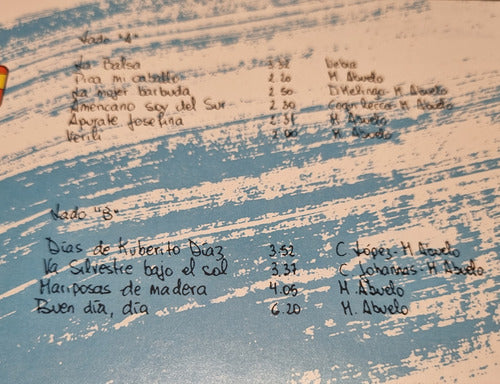 Lado "A"
La Balsa 3.32 Nebia
Pica mi caballo 2.20 M. Abuelo
La mujer barbuda 2.50 D. Melingo - M. Abuelo
Americano soy del Sur 2.30 M. Abuelo
Apurate Josefina 2.31 M. Abuelo
2.00 M. Abuelo
Lado "B"
Días de Ruberito Díaz 3.52 C López - M. Abuelo
Va Silvestre bajo el sol 3.37 C Johannas - M. Abuelo
Mariposas de madera 4.05 M. Abuelo
Buen día, día 6.20 M. Abuelo